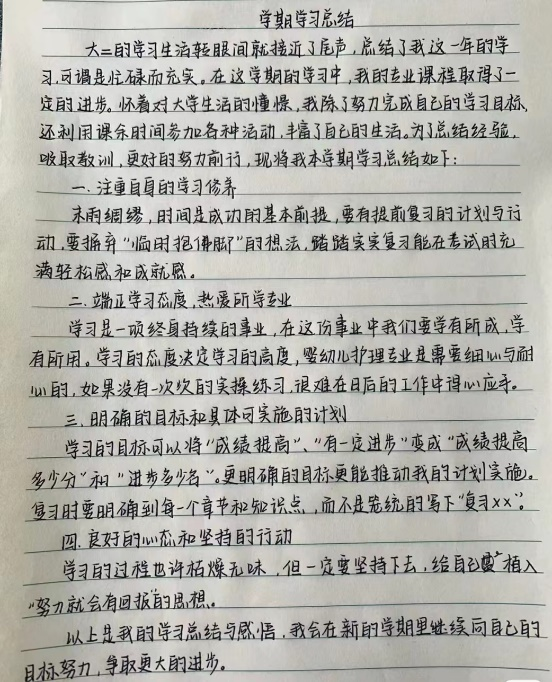 学期学习总结
大二的学习生活转眼间就接近了尾声,总结了我这一年的学
习,可谓是忙碌而充实。在这学期的学习中,我的专业课程取得了一
定的进步。怀着对大学生活的憧憬,我除了努力完成自己的学习目标,
还利用课余时间参加各种活动,丰富了自己的生活。为了总结经验,
吸取教训,更好的努力前行,现将我本学期学习总结如下:
一、注重自身的学习修养
未雨绸缪,时间是成功的基本前提,要有提前复习的计划与行
动,要摒弃“临时抱佛脚”的想法,踏踏实实复习能在考试时充
满轻松感和成就感。
二、端正学习态度,热爱所学专业
学习是一项终身持续的事业,在这份事业中我们要学有所成,学
有所用。学习的态度决定学习的高度,婴幼儿护理专业是需要细心与耐
心的,如果没有一次次的实操练习,很难在日后的工作中得心应手。
三、明确的目标和具体可实施的计划
学习的目标可以将“成绩提高”、“有一定进步”变成“成绩提高
多少分”和“进步多少名”。更明确的目标更能推动我的计划实施。
复习时要明确到每一个章节和知识点,而不是笼统的写下“复习××”。
四、良好的心态和坚持的行动
学习的过程也许枯燥无味,但一定要坚持下去,给自己植入
“努力就会有回报”的思想。
以上是我的学习总结与感悟,我会在新的学期里继续向自己的
目标努力,争取更大的进步。